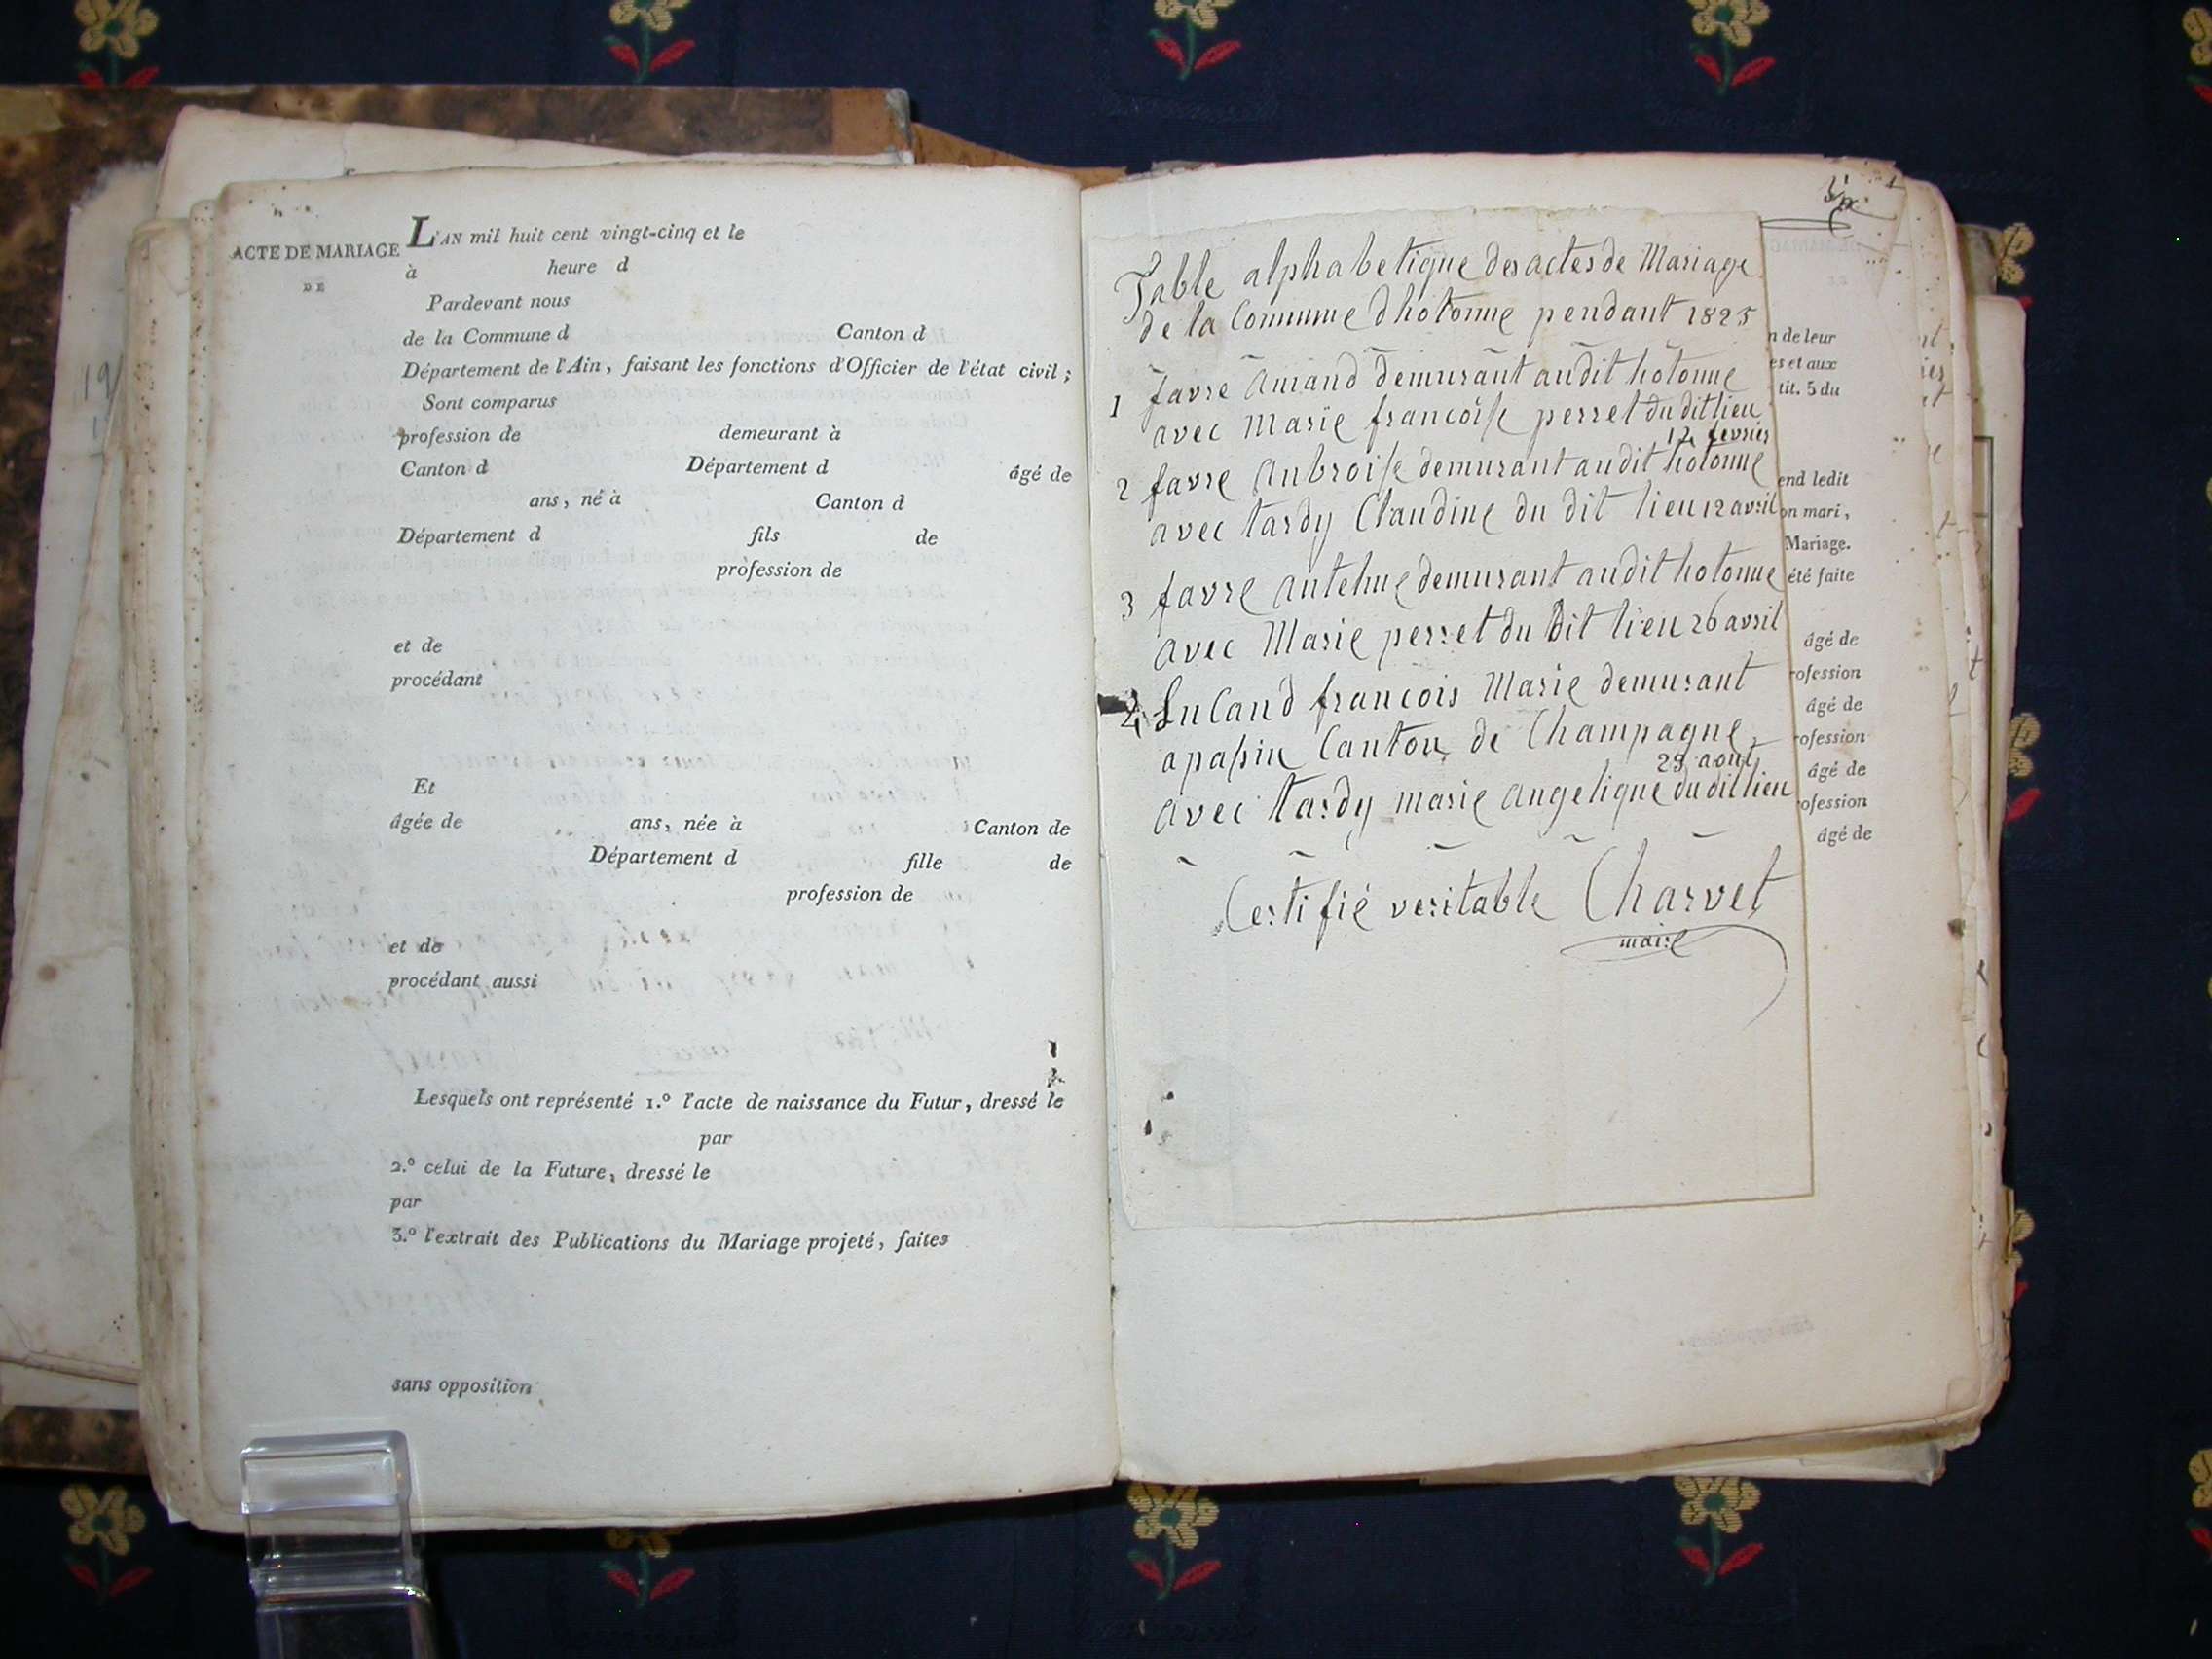 ACTE DE MARIAGE
DE
L'AN mil huit cent vingt-cinq et le
à heure d
Pardevant nous
de la Commune d Canton d
Département de l'Ain, faisant les fonctions d'Officier de l'état civil ;
Sont comparus
profession de demeurant à
Canton d Département d âgé de
ans, né à Canton d
Département d fils de
profession de
et de
procédant
Et
âgée de ans, née à Canton de
Département d fille de
profession de
et de
procédant aussi
Lesquels ont représenté 1.º l'acte de naissance du Futur, dressé le
par
2.º celui de la Future, dressé le
par
3.º l'extrait des Publications du Mariage projeté, faites
sans opposition
Table alphabetique des actes de Mariage
de la Commune d'hotonne pendant 1825
1 favre Amand demurant audit hotonne
avec Marie francoise perret du dit lieu
12 fevrier
2 favre Anbroise demurant audit hotonne
avec tardy Claudine du dit lieu 12 avril
3 favre antelme demurant audit hotonne
avec Marie perret du Dit lieu 26 avril
4 Lucand francois Marie demurant
apassin Canton de Champagne
29 aout
avec tardy marie angelique du dit lieu
Certifié veritable Charvet
maire
n de leur
es et aux
tit. 5 du
end ledit
on mari,
Mariage.
été faite
âgé de
rofession
âgé de
rofession
âgé de
ofession
âgé de